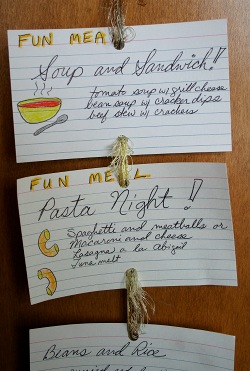 FUN MEA
Soup and Sandwich!!
tomato soup w/ grill cheese
bean soup w/ cracker dips
beef stew w/ crackers
FUN MEAL
Pasta Night!!
Spaghetti and meatballs or
Macaroni and cheese
Lasagna a la Abigail
Tuna melt
Beans and Rice